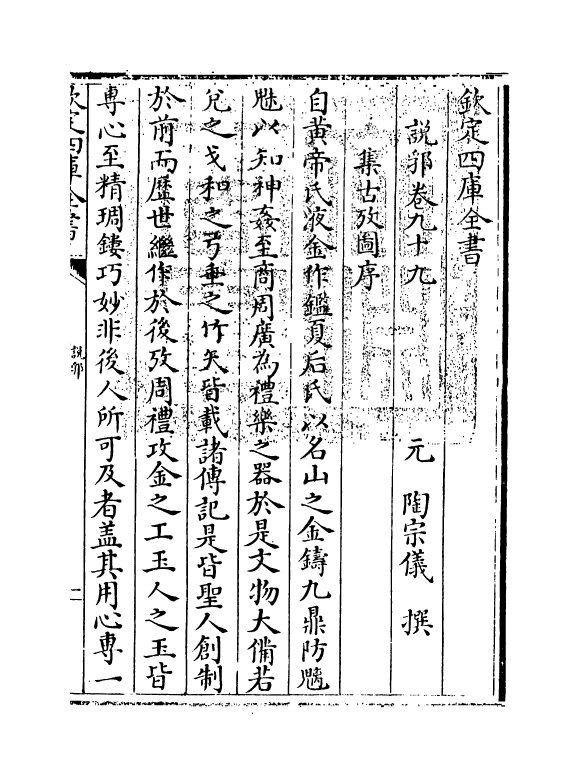 欽定四庫全書
說郛卷九十九
元 陶宗儀 撰
集古攷圖序
自黃帝氏液金作鑑夏后氏以名山之金鑄九鼎防魑
魅以知神姦至商周廣為禮樂之器於是文物大備若
兊之戈和之弓垂之竹矢皆載諸傳記是皆聖人創制
於前而歴世繼作於後攷周禮攻金之工玉人之玉皆
專心至精琱鏤巧妙非後人所可及者盖其用心專一
欽定四庫全書
說郛
二